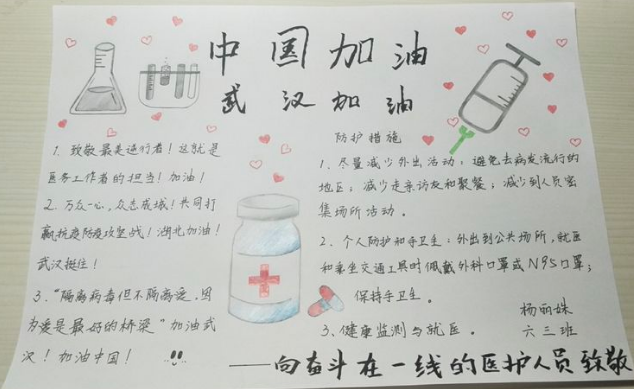 中国加油
武汉加油
1. 致敬最美逆行者！这就是
医务工作者的担当！加油！
2. 万众一心，众志成城！共同打
赢抗疫防疫攻坚战！湖北加油！
武汉挺住！
3. “隔离病毒但不隔离爱，因
为爱是最好的桥梁”加油武
汉！加油中国！
防护措施
1. 尽量减少外出活动：避免去病发流行的
地区；减少走亲访友和聚餐；减少到人员密
集场所活动。
2. 个人防护和手卫生：外出到公共场所，就医
和乘坐交通工具时佩戴外科口罩或N95口罩；
保持手卫生。
3、健康监测与就医。
杨丽姝
六三班
——向奋斗在一线的医护人员致敬